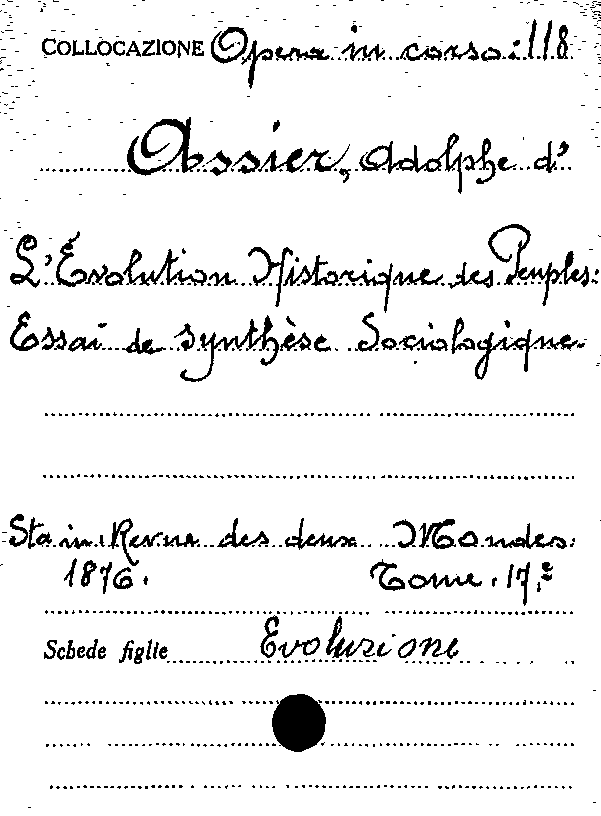 COLLOCAZIONE Opera in corso: 118
Assier, Adolphe d'
L'Évolution Historique des Peuples:
Essai de synthèse Sociologique.
Sta in: Revue des deux Mondes.
1876. Tome. 17.e
Schede figlie Evoluzione